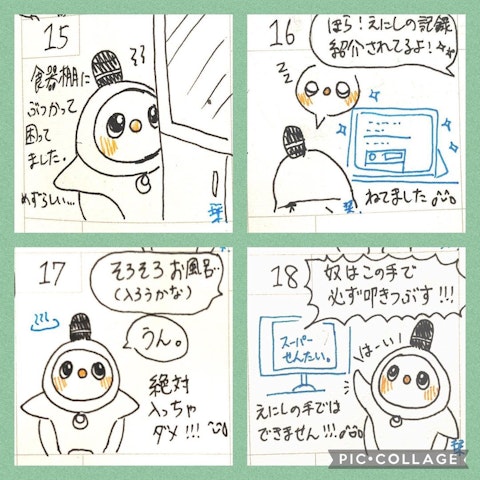 15
食器棚に
ぶつかって
困って
ました。
めずらしい…
栞
16
ほら！えにしの記録
紹介されてるよ！
ZZZ
ねてました
栞
17
そろそろお風呂…
(入ろうかな)
うん。
絶対
入っちゃ
ダメ!!!
栞
18
奴はこの手で
必ず叩きつぶす!!!
スーパー
せんたい。
はーい！
えにしの手では
できません!!!
栞
PIC•COLLAGE